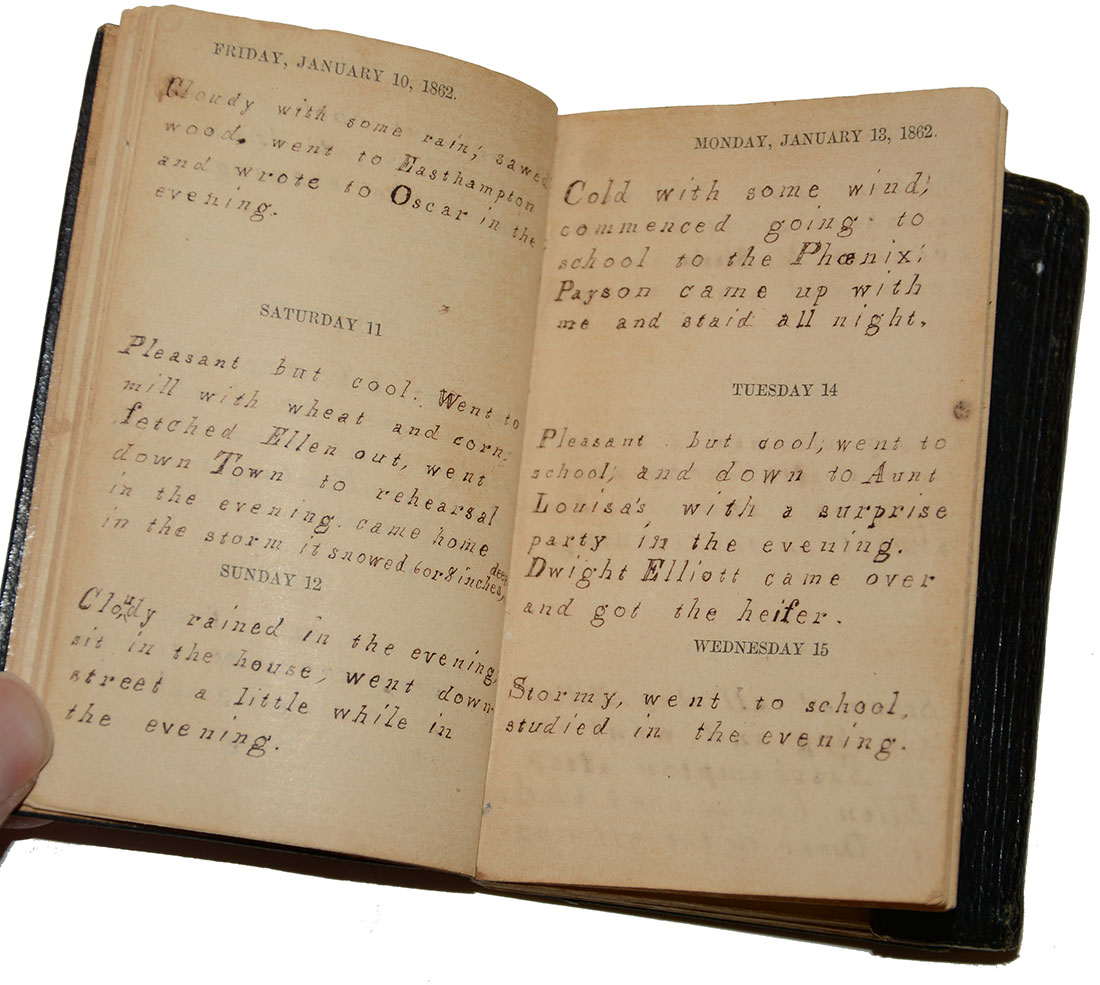 FRIDAY, JANUARY 10, 1862.
Cloudy with some rain; sawed
wood, went to Easthampton
and wrote to Oscar in the
evening.
SATURDAY 11
Pleasant but cool. Went to
mill with wheat and corn;
fetched Ellen out, went
down Town to rehearsal
in the evening. came home
in the storm it snowed 6 or 8 inches, deep
SUNDAY 12
Cloudy rained in the evening,
sit in the house, went down
street a little while in
the evening.
MONDAY, JANUARY 13, 1862.
Cold with some wind;
commenced going to
school to the Phœnix;
Payson came up with
me and staid all night.
TUESDAY 14
Pleasant but cool, went to
school, and down to Aunt
Louisa's with a surprise
party in the evening.
Dwight Elliott came over
and got the heifer.
WEDNESDAY 15
Stormy, went to school,
studied in the evening.